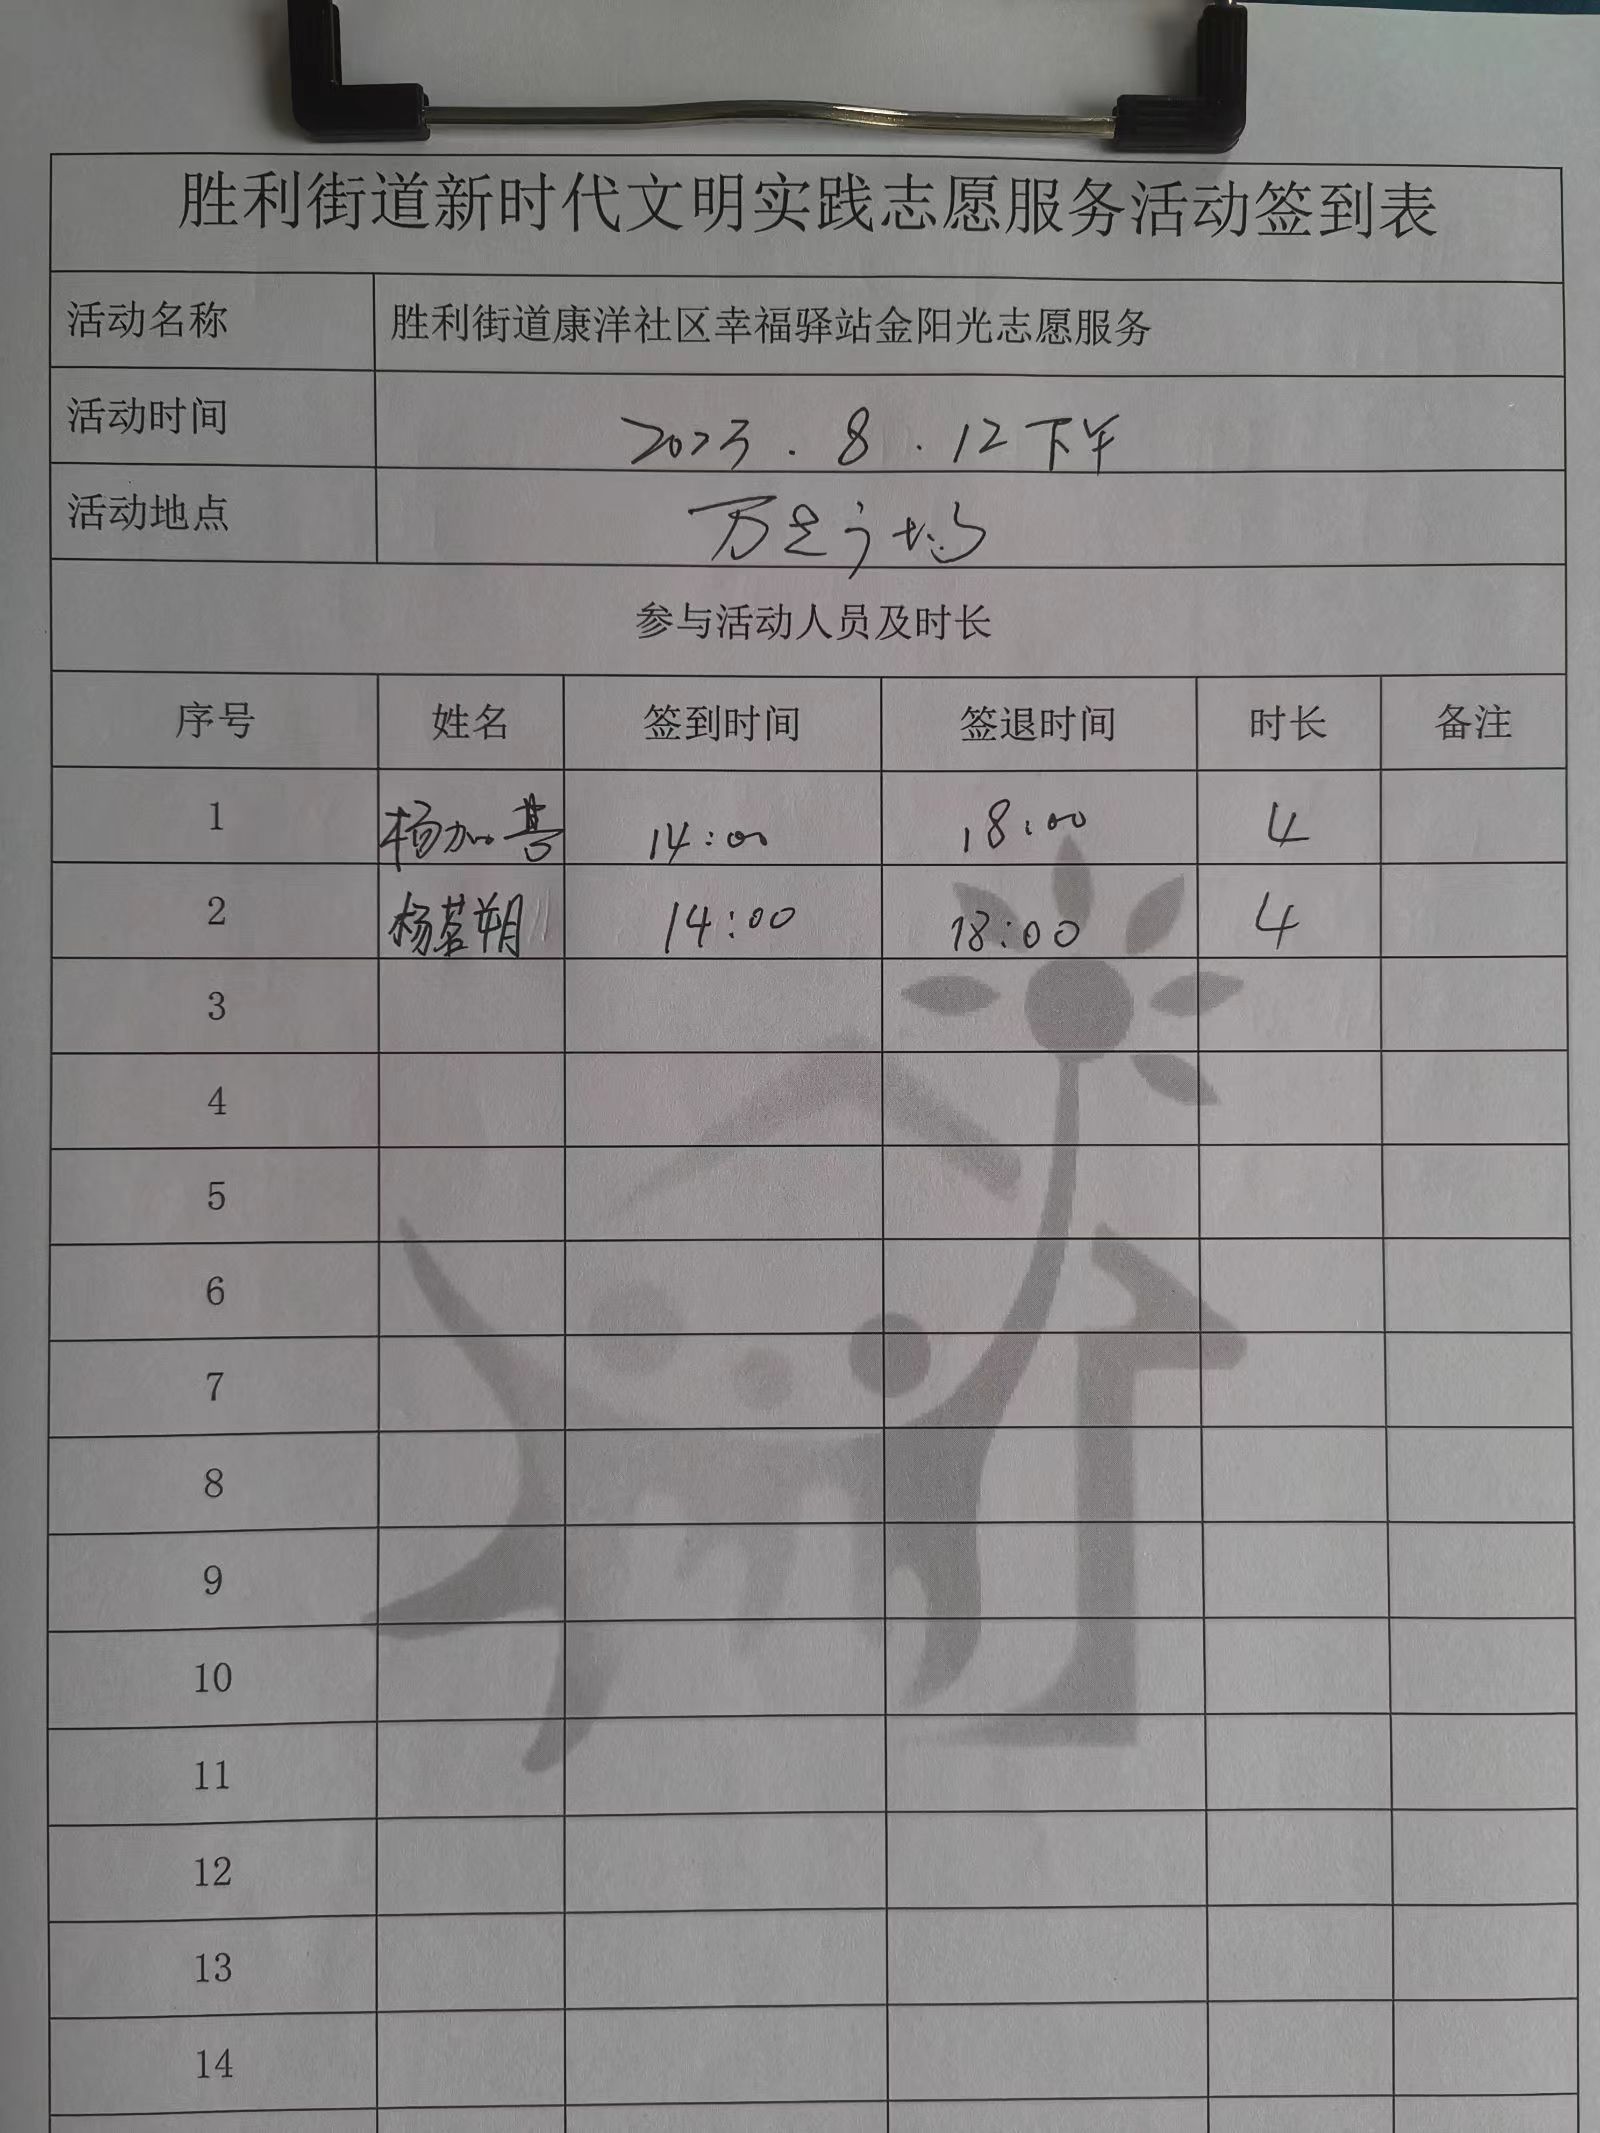 胜利街道新时代文明实践志愿服务活动签到表
活动名称 胜利街道康洋社区幸福驿站金阳光志愿服务
活动时间 2023.8.12下午
活动地点 万达广场
参与活动人员及时长
序号 姓名 签到时间 签退时间 时长 备注
1 杨加善 14:00 18:00 4
2 杨茗朔 14:00 18:00 4
3
4
5
6
7
8
9
10
11
12
13
14